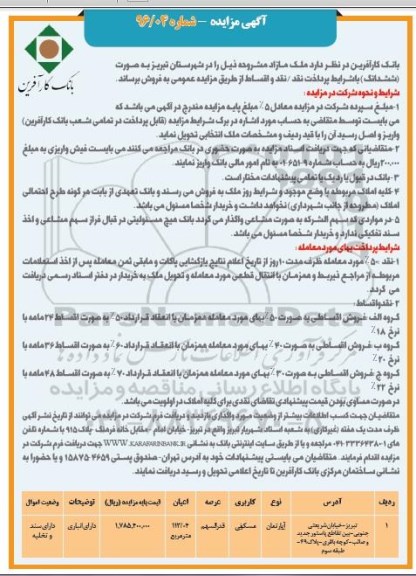 آگهی مزایده - شماره ۹۶/۰۴
بانک کارآفرین
بانک کارآفرین در نظر دارد ملک مازاد مشروحه ذیل را در شهرستان تبریز به صورت
(ششدانگ) با شرایط پرداخت نقد / نقد و اقساط از طریق مزایده عمومی به فروش برساند.
شرایط و نحوه شرکت در مزایده:
۱- مبلغ سپرده شرکت در مزایده معادل ۵٪ مبلغ پایه مزایده مندرج در آگهی می باشد که
می بایست توسط متقاضی به حساب مورد اشاره در برگ شرایط مزایده (قابل پرداخت در تمامی شعب بانک کارآفرین)
واریز و اصل رسید آن را با قید ردیف و مشخصات ملک انتخابی تحویل نماید.
۲- متقاضیانی که جهت دریافت اسناد مزایده به صورت حضوری در بانک مراجعه می کنند می بایست فیش واریزی به مبلغ
۲۰۰.۰۰۰ ریال به حساب شماره به نام امور مالی بانک واریز نمایند.
۳- بانک در قبول یا رد یک یا تمامی پیشنهادات مختار است.
۴- کلیه املاک مربوطه با وضع موجود و شرایط روز ملک به فروش می رسند و بانک تعهدی از بابت هر گونه طرح احتمالی
املاک (مطروحه از جانب شهرداری) نخواهد داشت و خریدار شخصا مسئول می باشد.
۵- در مواردی که سهم الشرکه به صورت مشاعی واگذار می گردد بانک هیچ مسئولیتی در قبال فراز سهم مشاعی و اخذ
سند تفکیکی ندارد و خریدار شخصا مسئول می باشد.
شرایط پرداخت بهای مورد معامله:
۱- نقد ۵۰٪ مورد معامله ظرف مدت ۱۰ روز از تاریخ اعلام نتایج بازگشایی پاکات و مابقی ثمن معامله پس از اخذ استعلامات
مربوطه از مراجع ذیربط و همزمان با انتقال قطعی مورد معامله و تحویل ملک به خریدار در دفتر اسناد رسمی دریافت
می گردد.
۲- نقد و اقساط:
گروه الف فروش اقساطی به صورت ۵۰٪ بهای مورد معامله همزمان با انعقاد قرارداد ۵۰٪ به صورت اقساط ۲۴ ماهه با
نرخ ۱۸٪
گروه ب فروش اقساطی به صورت ۴۰٪ بهای مورد معامله همزمان با انعقاد قرارداد ۶۰٪ به صورت اقساط ۳۶ ماهه با
نرخ ۲۰٪
گروه ج فروش اقساطی به صورت ۳۰٪ بهای مورد معامله همزمان با انعقاد قرارداد ۷۰٪ به صورت اقساط ۴۸ ماهه با
نرخ ۲۲٪
در صورت مساوی بودن قیمت پیشنهادی تقاضای نقدی برای کلیه املاک در اولویت می باشد.
متقاضیان جهت کسب اطلاعات بیشتر از وضعیت مورد واگذاری بازدید و دریافت فرم شرکت در مزایده می توانند از تاریخ نشر آگهی
ظرف مدت یک هفته (غیر اداری) به شعبه استاد شهریار تبریز واقع در تبریز- خیابان امام - مقابل خانه فرهنگ - پلاک ۹۱۵ با شماره تلفن
های مراجعه و یا از طریق سایت اینترنتی بانک به نشانی WWW.KARAFARINBANK.IR جهت دریافت فرم شرکت در
مزایده اقدام فرمایند. متقاضیان می بایستی پیشنهادات خود به آدرس تهران- صندوق پستی ۴۶۵۹-۱۵۸۷۵ و یا حضورا به
نشانی ساختمان مرکزی بانک کارآفرین تا تاریخ اعلامی تحویل و رسید دریافت نمایند.
ردیف آدرس نوع کاربری عرصه اعیان قیمت پایه مزایده (ریال) توضیحات وضعیت اموال
۱ تبریز- خیابان شریعتی جنوبی- بین تقاطع پاستور جدید و صائب- کوچه باقری- پلاک ۴۹- طبقه سوم آپارتمان مسکونی قدرالسهم ۱۱۲/۰۴ مترمربع ۱,۷۸۵,۲۰۰,۰۰۰ دارای انباری دارای سند و تخلیه